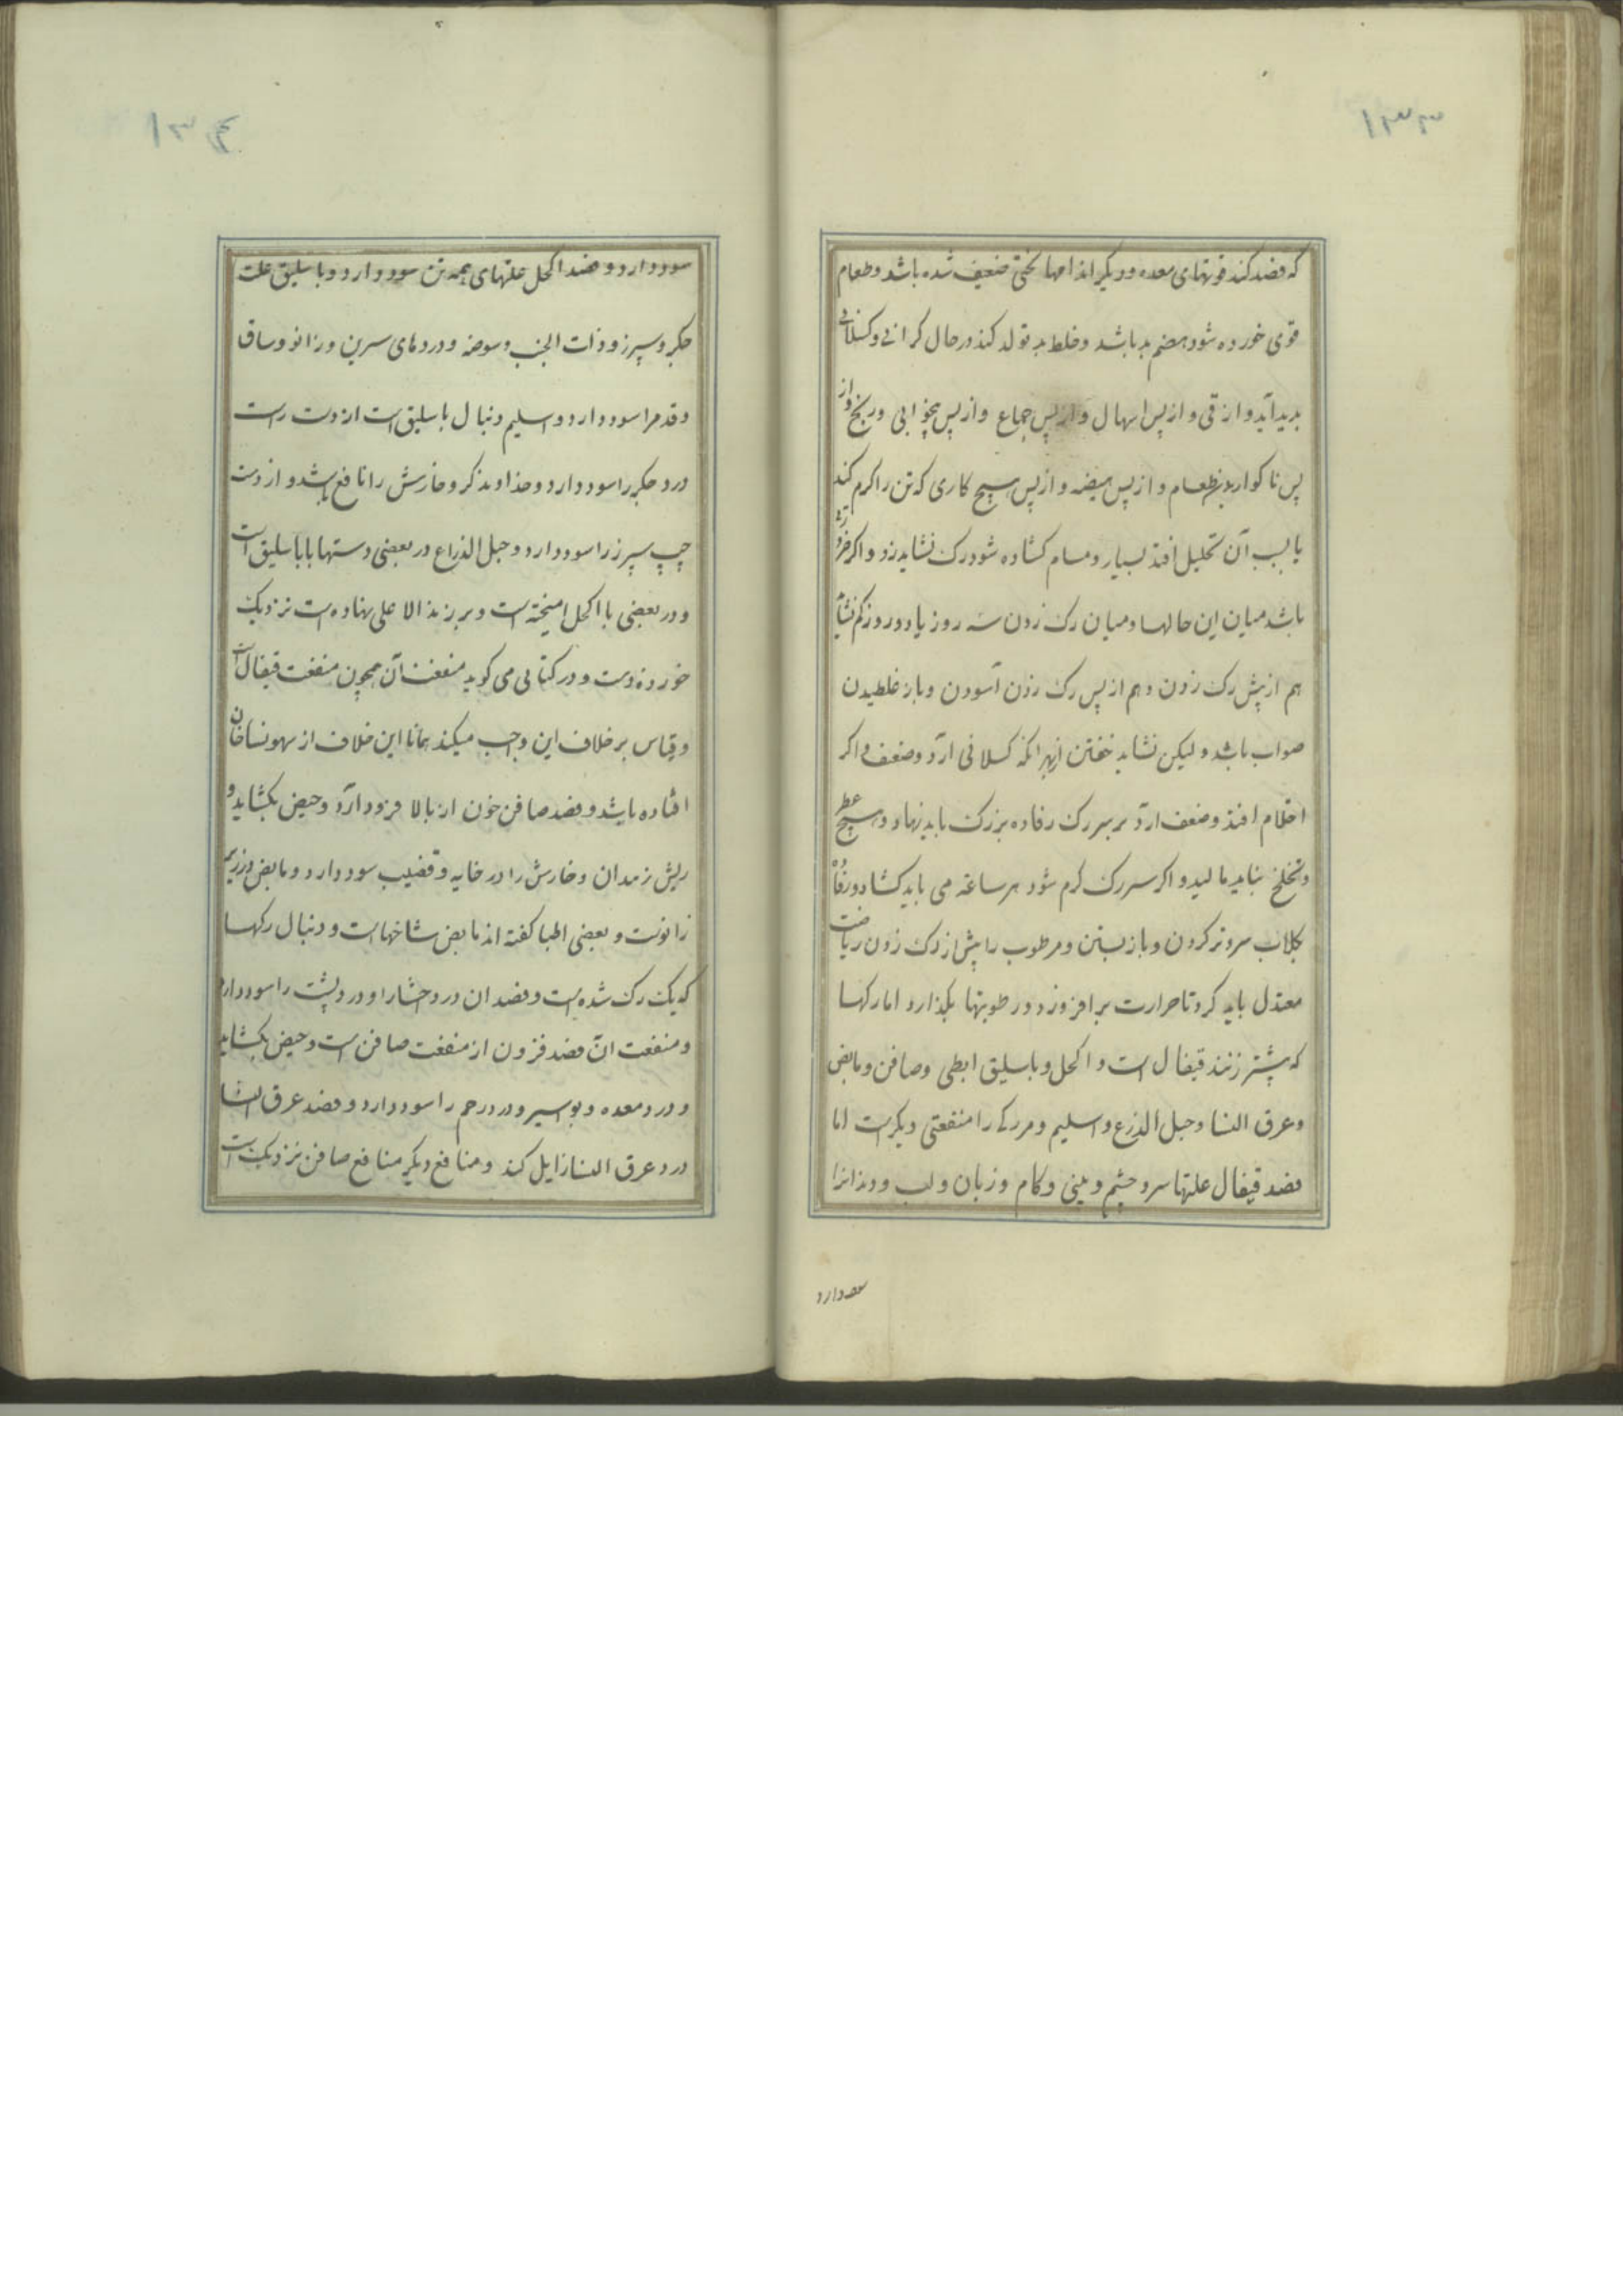 ۱۳۳
که فصد کند قوتهای معده و دیکر اندامها لختی ضعیف شده باشد و طعام
قوی خورده شود هضم بد باشد و خلط بد تولد کند در حال کرانی و کسلانی
بدید آید و از قی و از پس اسهال و از پس جماع و از پس بیخوابی و رنج و از
پس نا کواریدن طعام و از پس هیضه و از پس هیچ کاری که تن را کرم کند
یا بسبب آن تحلیل افتد بسیار و مسام کشاده شود رک نشاید زد و اکر
باشد میان این حالها و میان رک زدن سه روز یا دو روز کم نشاید
هم از پیش رک زدن و هم از پس رک زدن آسودن و باز غلطیدن
صواب باشد و لیکن نشاید خفتن از بهر انکه کسلانی آرد و ضعف و اکر
احتلام افتد و ضعف آرد بر سر رک رفاده بزرک باید نهاد و هیچ عطر
و تخلخ نباید مالید و اکر سر رک کرم شود هر ساعة می باید کشاد و رفاده
بکلاب سرد تر کردن و باز بستن و مرطوب را پیش از رک زدن ریاضت
معتدل باید کرد تا حرارت بر افروزد و رطوبتها بکدازد اما رکها
که بیشتر زنند قیفال است و اکحل و باسلیق ابطی و صافن و مابض
و عرق النسا و حبل الذرع و اسلیم و هر رکی را منفعتی دیکرست اما
فصد قیفال علتها سر و چشم و بینی و کام و زبان و لب و دندانرا
سود دارد
۱۳۴
سود دارد و فصد اکحل علتهای همه تن سود دارد و باسلیق علت
جکر و سپرز و ذات الجنب و سوصه و دردهای سرین و زانو و ساق
و قدم را سود دارد و اسلیم دنبال باسلیق است از دست راست
درد جکر را سود دارد و خداوند کر و خارش را نافع باشد و از دست
چپ سپرز را سود دارد و حبل الذراع در بعضی دستها با باسلیق است
و در بعضی با اکحل امیخته است و بر زند الاعلی نهاده است نزدیک
خورده دست و در کتابی می کوید منفعت آن همچون منفعت قیفال است
و قیاس بر خلاف این واجب میکند همانا این خلاف از سهو نساخان
افتاده باشد و فصد صافن خون از بالا فرود آرد و حیض بکشاید و
ریش زهدان و خارش را در خایه و قضیب سود دارد و مابض در زیر
زانوست و بعضی اطبا کفته اند مابض شاخهاست و دنبال رکها
که یک رک شده است و فصد ان درد احشا را و درد پشت را سود دارد
و منفعت ان فصد فزون از منفعت صافن است و حیض بکشاید
و درد معده و بواسیر و درد رحم را سود دارد و فصد عرق النسا
درد عرق النسا زایل کند و منافع دیکر منافع صافن نزدیک است